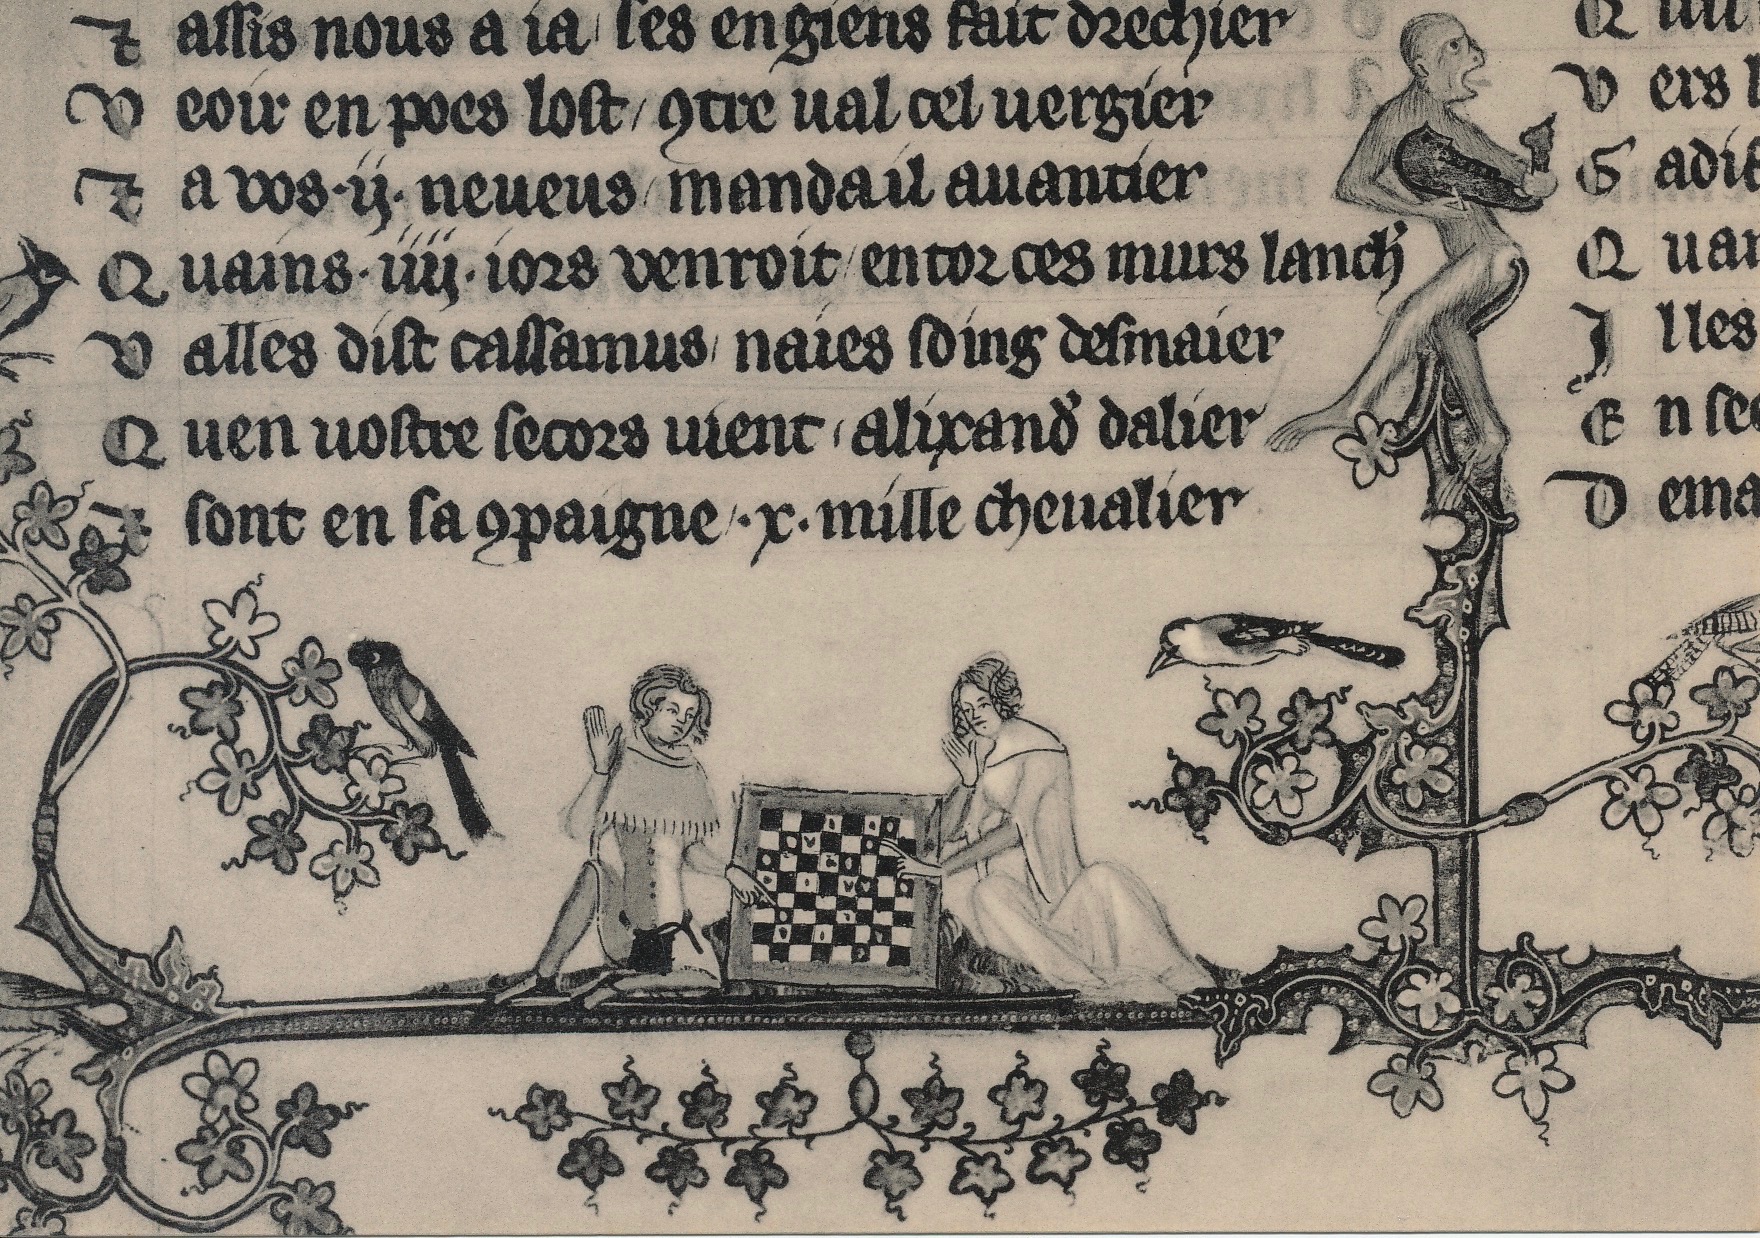 ⁊ assis nous a ia / ses engiens fait drechier
V eoir en poes lost / ꝯtre ual cel uergier
⁊ a vos ·ij· neueus / manda il auantier
Q uains ·iiij· iors venroit / entor ces murs lanch'
V alles dist cassamus / naies soing desmaier
Q uen uostre secors uient / alixand' dalier
⁊ sont en sa ꝯpaigne / ·x· mille cheualier
Q
V ers
G
Q
J lles
E n
D